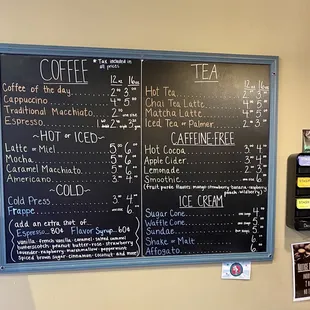 COFFEE
* Tax included in all prices
12 oz 16 oz
Coffee of the day 2 3
Cappuccino 4 5
Traditional Macchiato 2
Espresso
~HOT or ICED~
Latte = Miel 5 6
Mocha 5 6
Caramel Macchiato 5 6
Americano 3 4
~COLD~
Cold Press 3 4
Frappe 6
add an extra shot of...
Espresso 80¢ Flavor Syrup 60¢
vanilla · french vanilla · caramel · salted caramel
butterscotch · peanut butter · rose · strawberry
lavender · raspberry · marshmallow · peppermint
spiced brown sugar · cinnamon · coconut and more!
TEA
12 oz 16 oz
Hot Tea 2
Chai Tea Latte 4 5
Matcha Latte 4 5
Iced Tea or Palmer 3 4
CAFFEINE FREE
Hot Cocoa 3 4
Apple Cider 3 4
Lemonade 2 3
Smoothie 6
(fruit puree flavors: mango · strawberry · banana · raspberry
peach · wildberry)
ICE CREAM
Sugar Cone
Waffle Cone
Sundae
Shake = Malt 6
Affogato